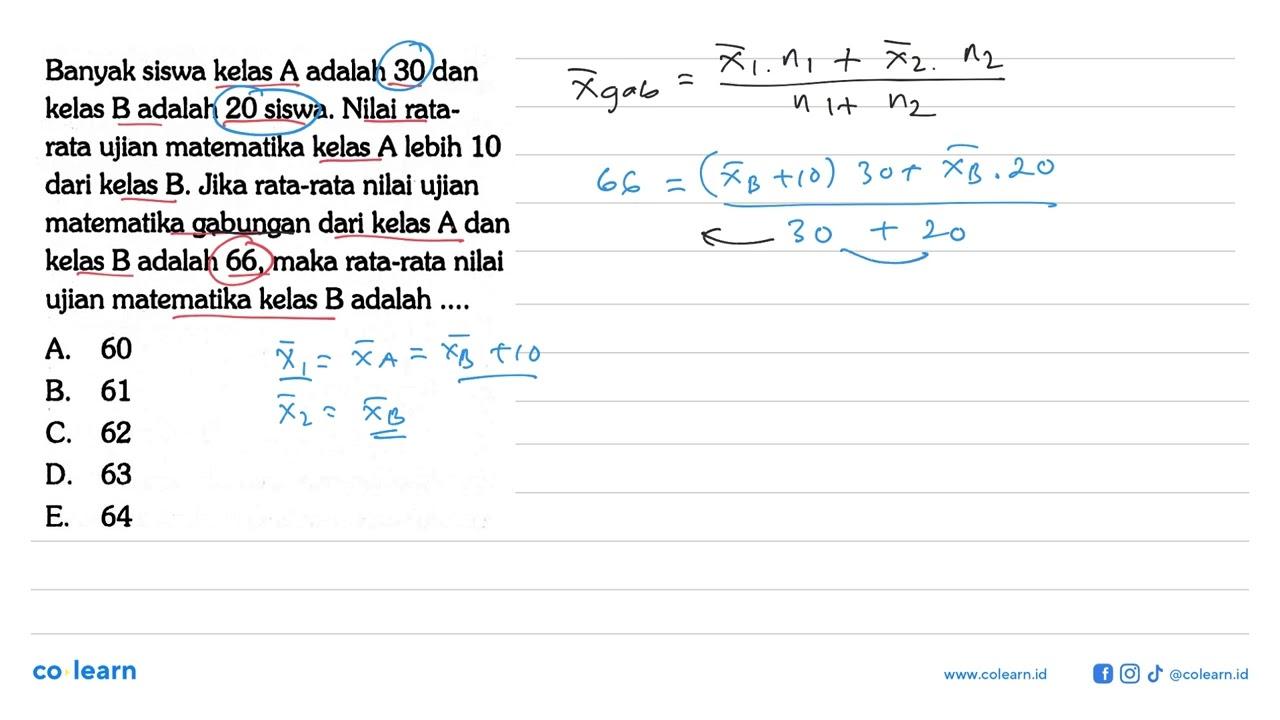 Banyak siswa kelas A adalah 30 dan
kelas B adalah 20 siswa. Nilai rata-
rata ujian matematika kelas A lebih 10
dari kelas B. Jika rata-rata nilai ujian
matematika gabungan dari kelas A dan
kelas B adalah 66, maka rata-rata nilai
ujian matematika kelas B adalah ....
A. 60
B. 61
C. 62
D. 63
E. 64
x̄₁ = x̄A = x̄B + 10
x̄₂ = x̄B
x̄gab = x̄₁ . n₁ + x̄₂ . n₂
n₁ + n₂
66 = (x̄B + 10) 30 + x̄B . 20
← 30 + 20
co learn
www.colearn.id
@colearn.id